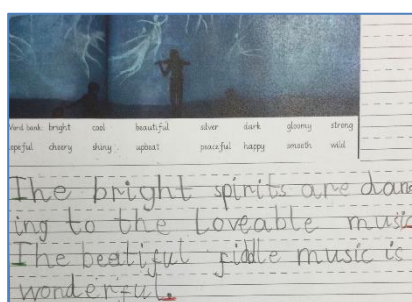 Word bank: bright cool beautiful silver dark gloomy strong
opeful cheery shiny upbeat peaceful happy smooth wild
The bright spirits are danc
ing to the Loveable music
The beatiful fiddle music is
wonderful.